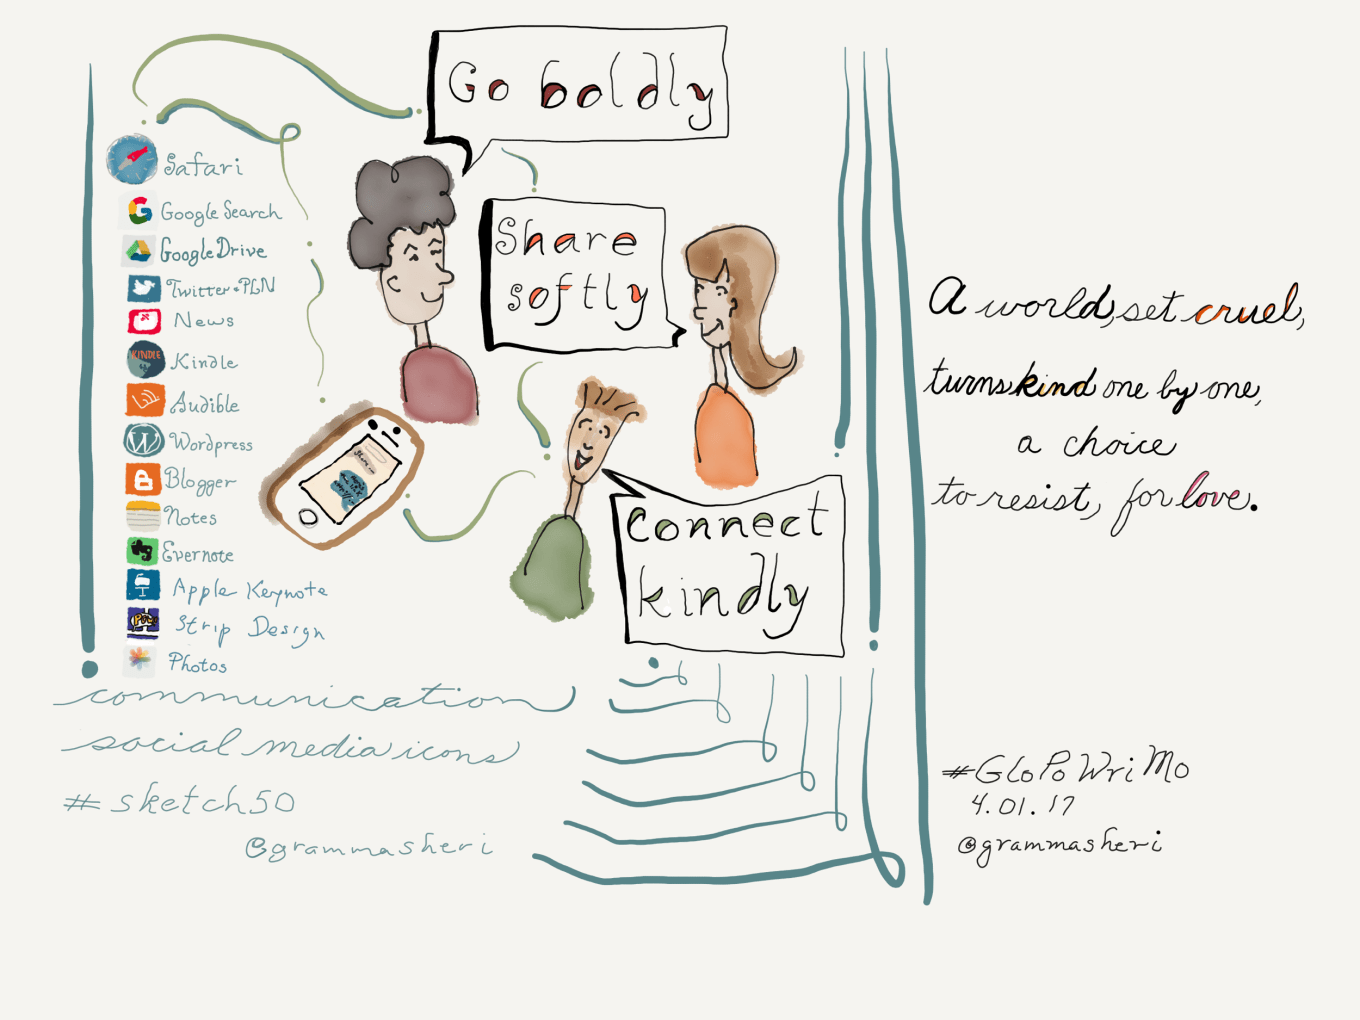 Go boldly
Safari
Google Search
Google Drive
Twitter•PLN
News
KINDLE
Kindle
Audible
Wordpress
Blogger
Notes
Evernote
Apple Keynote
POW
Strip Design
Photos
Share
softly
connect
kindly
communication
social media icons
#sketch50
@grammasheri
A world, set cruel,
turns kind one by one,
a choice
to resist, for love.
#GloPoWriMo
4.01.17
@grammasheri